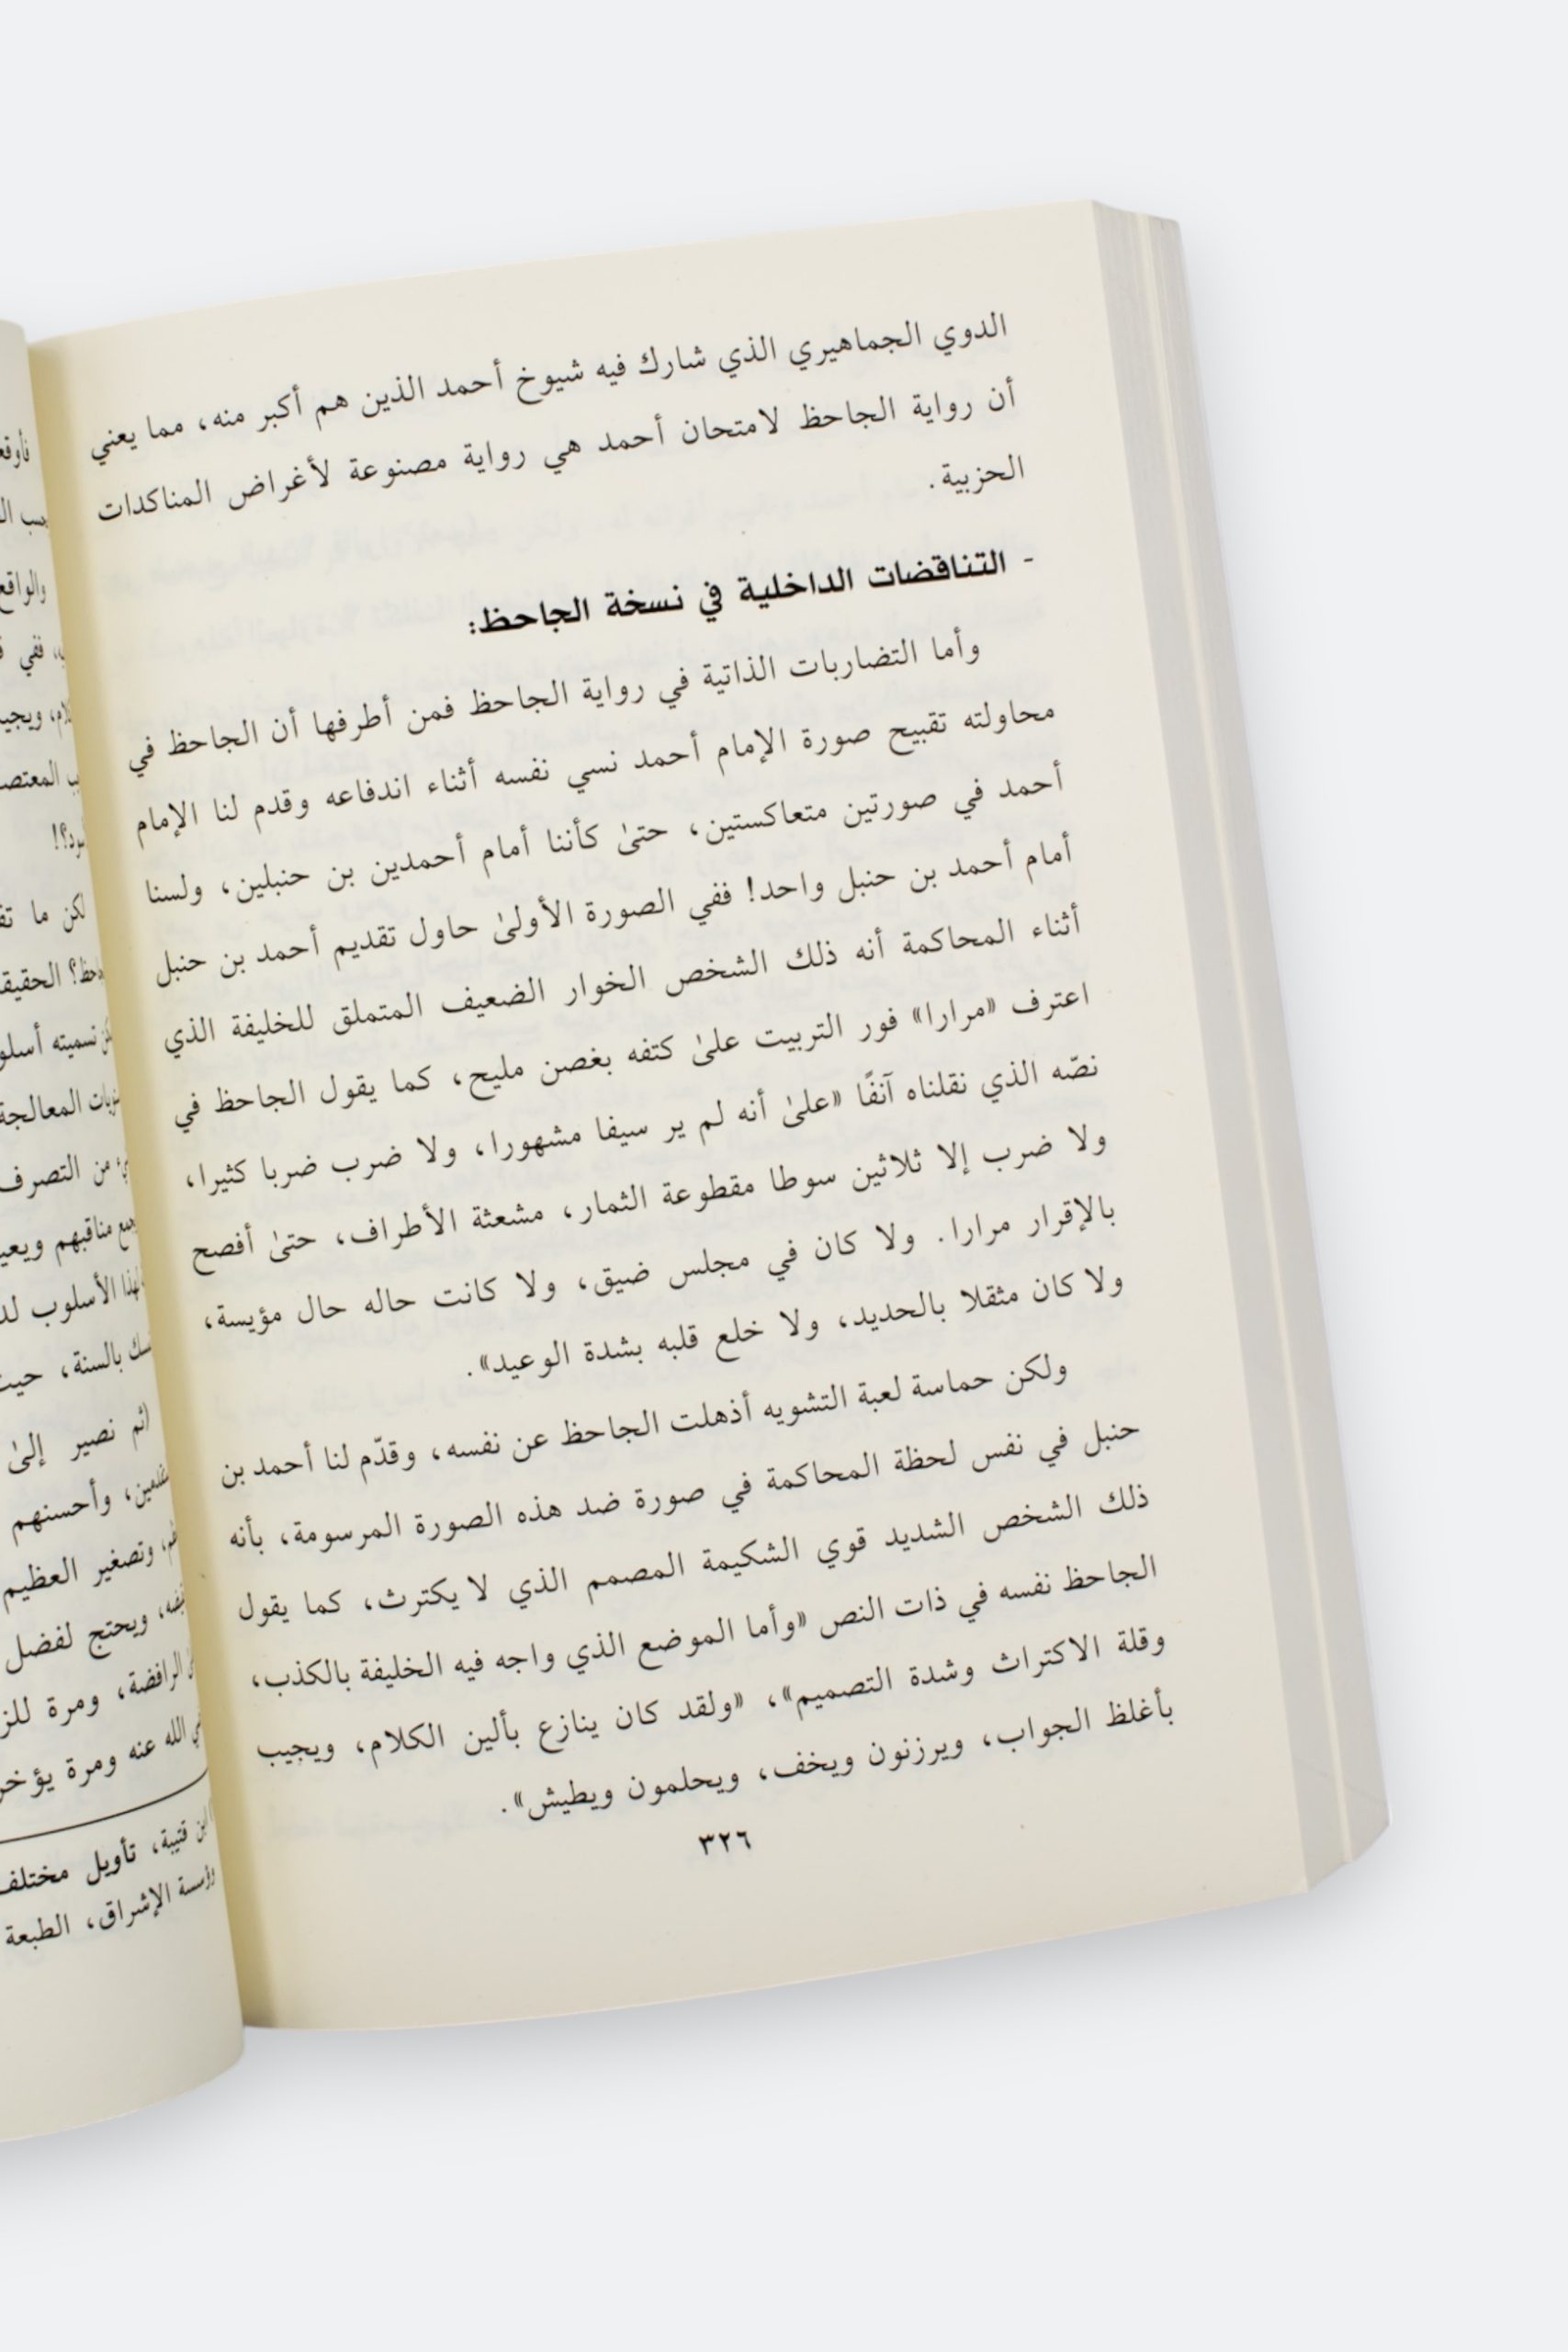 الدوي الجماهيري الذي شارك فيه شيوخ أحمد الذين هم أكبر منه، مما يعني
أن رواية الجاحظ لامتحان أحمد هي رواية مصنوعة لأغراض المناكدات
الحزبية.
- التناقضات الداخلية في نسخة الجاحظ:
وأما التضاربات الذاتية في رواية الجاحظ فمن أطرفها أن الجاحظ في
محاولته تقبيح صورة الإمام أحمد نسي نفسه أثناء اندفاعه وقدم لنا الإمام
أحمد في صورتين متعاكستين، حتىٰ كأننا أمام أحمدين بن حنبلين، ولسنا
أمام أحمد بن حنبل واحد! ففي الصورة الأولىٰ حاول تقديم أحمد بن حنبل
أثناء المحاكمة أنه ذلك الشخص الخوار الضعيف المتملق للخليفة الذي
اعترف «مرارا» فور التربيت علىٰ كتفه بغصن مليح، كما يقول الجاحظ في
نصّه الذي نقلناه آنفًا «علىٰ أنه لم ير سيفا مشهورا، ولا ضرب ضربا كثيرا،
ولا ضرب إلا ثلاثين سوطا مقطوعة الثمار، مشعثة الأطراف، حتىٰ أفصح
بالإقرار مرارا. ولا كان في مجلس ضيق، ولا كانت حاله حال مؤيسة،
ولا كان مثقلا بالحديد، ولا خلع قلبه بشدة الوعيد».
ولكن حماسة لعبة التشويه أذهلت الجاحظ عن نفسه، وقدّم لنا أحمد بن
حنبل في نفس لحظة المحاكمة في صورة ضد هذه الصورة المرسومة، بأنه
ذلك الشخص الشديد قوي الشكيمة المصمم الذي لا يكترث، كما يقول
الجاحظ نفسه في ذات النص «وأما الموضع الذي واجه فيه الخليفة بالكذب،
وقلة الاكتراث وشدة التصميم»، «ولقد كان ينازع بألين الكلام، ويجيب
بأغلظ الجواب، ويرزنون ويخف، ويحلمون ويطيش».
٣٢٦
والواقع
ففي
ويجيب
المعتصم
لكن ما
الحقيقة
تسميته
المعالجة
من التصرف
مناقبهم
الأسلوب
بالسنة، حيث
(ثم نصير إلىٰ
وأحسنهم
وتصغير العظيم
ويحتج لفضل
الرافضة، ومرة
الله عنه ومرة
ابن قتيبة، تأويل مختلف
الإشراق، الطبعة